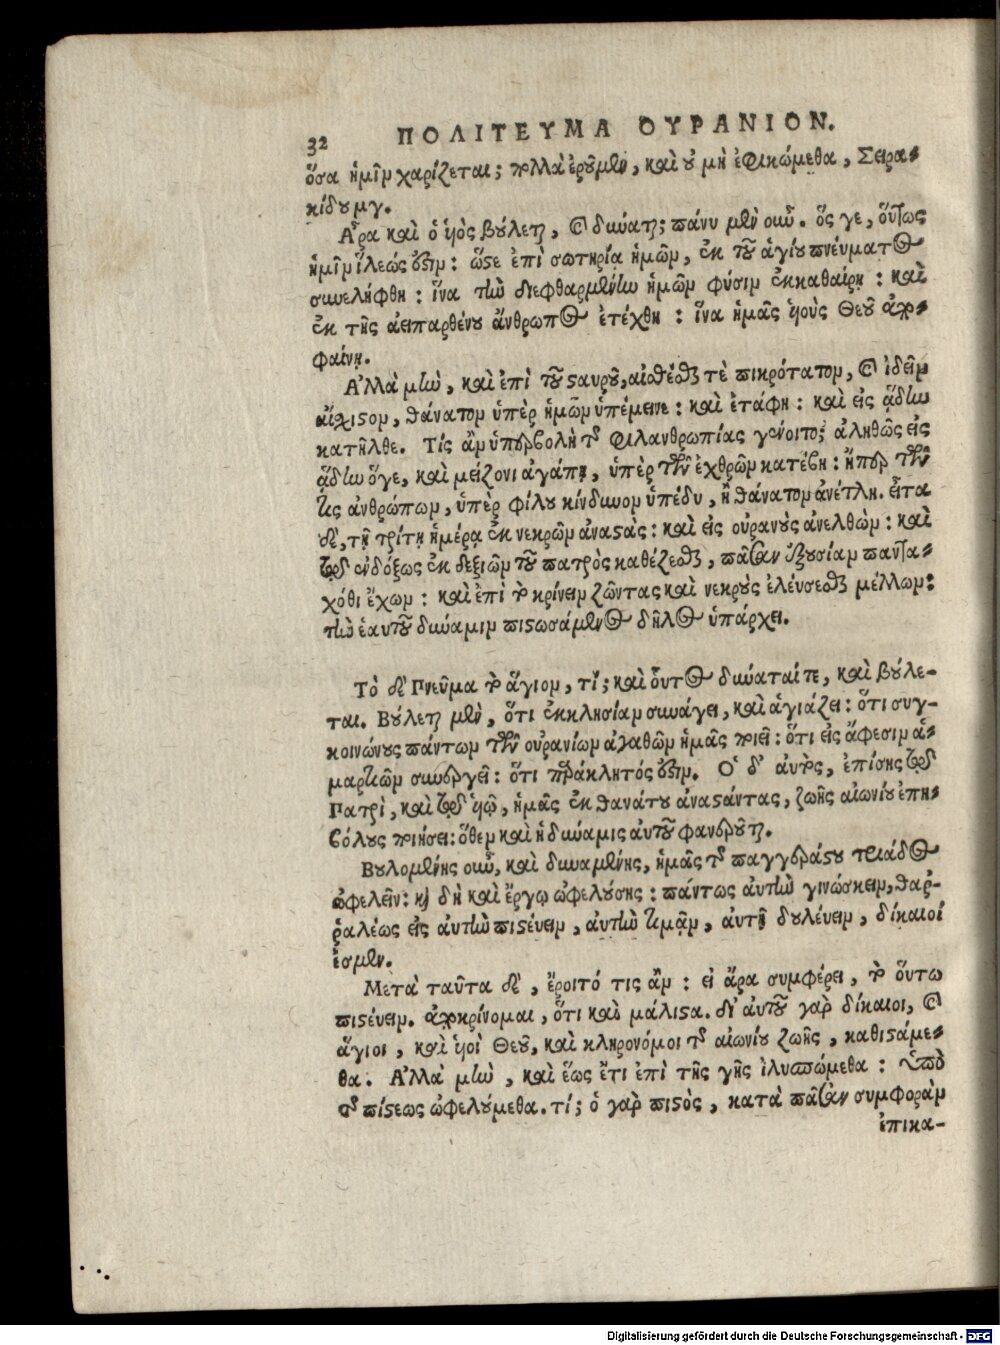 32 ΠΟΛΙΤΕΥΜΑ ΟΥΡΑΝΙΟΝ.
ὅσα ἡμῖν χαρίζεται; πολλὰ ἐροῦμεν, καὶ οὐ μὴ ἐφικώμεθα, Σειρα-
κίδου μγ.
Ἆρα καὶ ὁ ὑὸς βούλεται, καὶ δύναται; πάνυ μὲν οὖν. ὅς γε, οὕτως
ἡμῖν ἵλεώς ἐστιν: ὥστε ἐπὶ σωτηρία ἡμῶν, ἐκ τοῦ ἁγίου πνεύματος
συνελήφθη: ἵνα τὴν διεφθαρμένην ἡμῶν φύσιν ἐκκαθαίρῃ: καὶ
ἐκ τῆς ἀειπαρθένου ἄνθρωπος ἐτέχθη: ἵνα ἡμᾶς ὑοὺς Θεοῦ ἀπο-
φαίνῃ.
Ἀλλὰ μὴν, καὶ ἐπὶ τοῦ σταυροῦ, αἰσθέσθαι τὲ πικρότατον, καὶ ἰδεῖν
αἴσχιστον, θάνατον ὑπὲρ ἡμῶν ὑπέμεινε: καὶ ἐτάφη: καὶ εἰς ᾅδην
κατῆλθε. Τίς ἂν ὑπερβολὴ τῆς φιλανθρωπίας γένοιτο; ἀληθῶς εἰς
ᾅδην ὅγε, καὶ μείζονι ἀγάπῃ, ὑπὲρ τῶν ἐχθρῶν κατέβη: ἤπερ τῶν
τις ἀνθρώπων, ὑπὲρ φίλου κίνδυνον ὑπέδυ, ἢ θάνατον ἀνέτλη. εἶτα
δὲ, τῇ τρίτῃ ἡμέρᾳ ἐκ νεκρῶν ἀναστὰς: καὶ εἰς οὐρανοὺς ἀνελθὼν: καὶ
τῷ ἐνδόξως ἐκ δεξιῶν τοῦ πατρὸς καθέζεσθαι, πᾶσαν ἐξουσίαν παντα-
χόθι ἔχων: καὶ ἐπὶ τὸ κρίνειν ζῶντας καὶ νεκροὺς ἐλεύσεσθαι μέλλων:
τὴν ἑαυτοῦ δύναμιν πιστωσάμενος δῆλος ὑπάρχει.
Τὸ δὲ Πνεῦμα τὸ ἅγιον, τί; καὶ οὗτος δύναταίτε, καὶ βούλε-
ται. Βούλεται μὲν, ὅτι ἐκκλησίαν συνάγει, καὶ ἁγιάζει: ὅτι συγ-
κοινώνους πάντων τῶν οὐρανίων ἀγαθῶν ἡμᾶς ποιεῖ: ὅτι εἰς ἄφεσιν ἁ-
μαρτιῶν συνεργεῖ: ὅτι παράκλητός ἐστιν. Ὁ δ' αὐτὸς, ἐπίσης τῷ
Πατρὶ, καὶ τῷ ὑῷ, ἡμᾶς ἐκ θανάτου ἀναστάντας, ζωῆς αἰωνίου ἐπη-
βόλους ποιήσει: ὅθεν καὶ ἡ δύναμις αὐτοῦ φανεροῦται.
Βουλομένης οὖν, καὶ δυναμένης, ἡμᾶς τῆς παγγεράστου τριάδος
ὠφελεῖν: καὶ δὴ καὶ ἔργῳ ὠφελούσης: πάντως αὐτὴν γινώσκειν, θαρ-
ῥαλέως εἰς αὐτὴν πιστεύειν, αὐτὴν τιμᾷν, αὐτῇ δουλεύειν, δίκαιοί
ἐσμεν.
Μετὰ ταῦτα δὲ, ἔροιτό τις ἂν: εἰ ἄρα συμφέρει, τὸ οὕτω
πιστεύειν. ἀποκρίνομαι, ὅτι καὶ μάλιστα. δι' αὐτοῦ γὰρ δίκαιοι, καὶ
ἅγιοι, καὶ ὑοὶ Θεοῦ, καὶ κληρονόμοι τῆς αἰωνίου ζωῆς, καθιστάμε-
θα. Ἀλλὰ μὴν, καὶ ἕως ἔτι ἐπὶ τῆς γῆς ἰλυσπώμεθα: ὑπὸ
τῆς πίστεως ὠφελούμεθα. τί; ὁ γὰρ πιστὸς, κατὰ πᾶσαν συμφορὰν
ἐπικα-
Digitalisierung gefördert durch die Deutsche Forschungsgemeinschaft - DFG